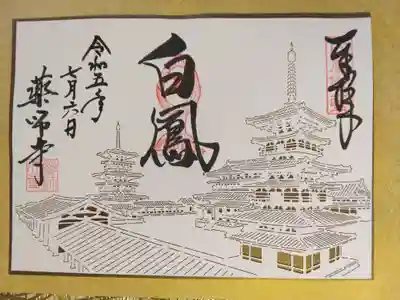 奉拝
白鳳
令和五年
七月六日
薬師寺